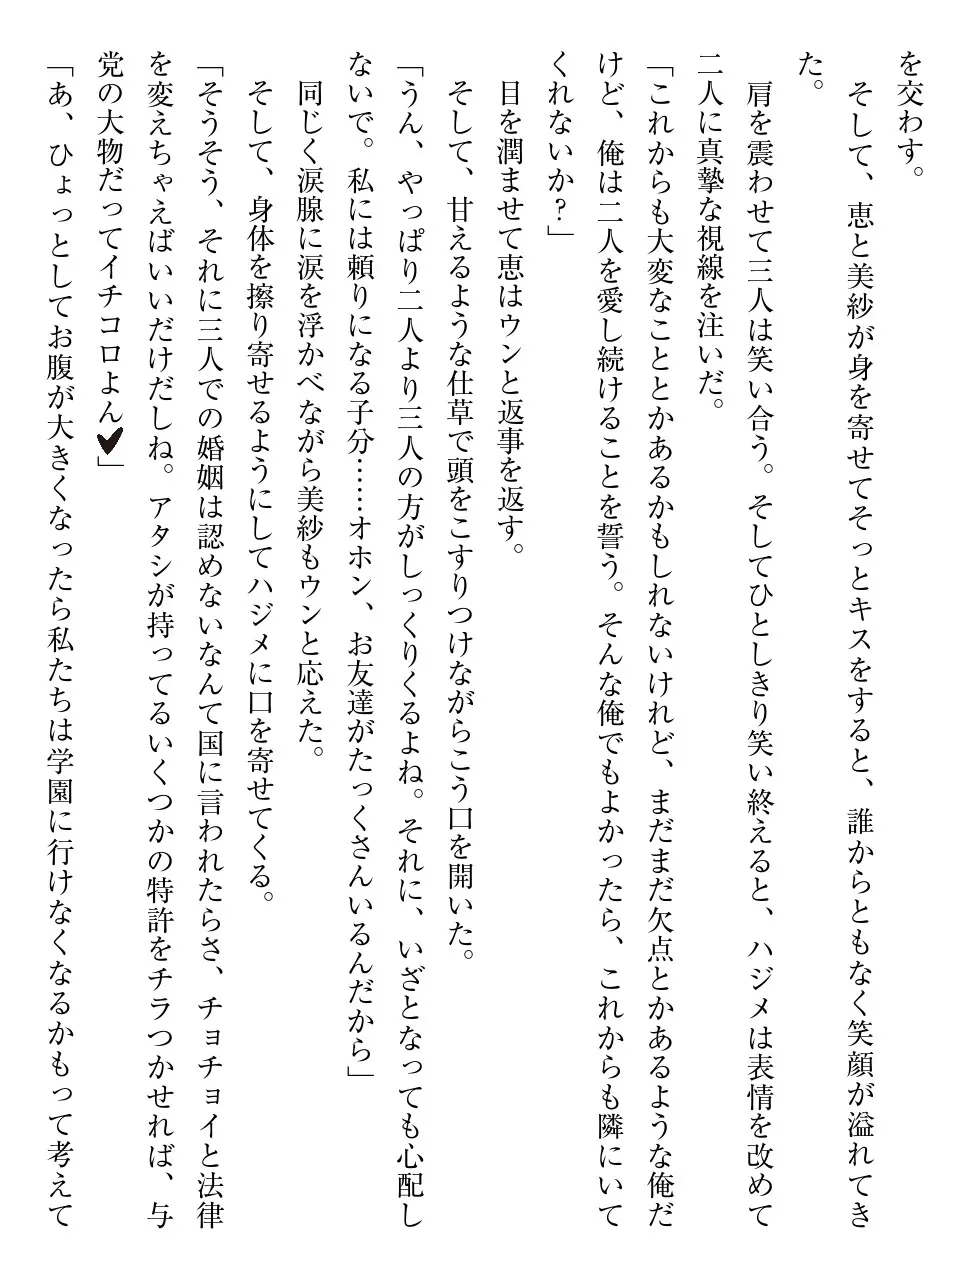 を交わす。
　そして、恵と美紗が身を寄せてそっとキスをすると、誰からともなく笑顔が溢れてき
た。
　肩を震わせて三人は笑い合う。そしてひとしきり笑い終えると、ハジメは表情を改めて
二人に真摯な視線を注いだ。
「これからも大変なこととかあるかもしれないけれど、まだまだ欠点とかあるような俺だ
けど、俺は二人を愛し続けることを誓う。そんな俺でもよかったら、これからも隣にいて
くれないか？」
　目を潤ませて恵はウンと返事を返す。
　そして、甘えるような仕草で頭をこすりつけながらこう口を開いた。
「うん、やっぱり二人より三人の方がしっくりくるよね。それに、いざとなっても心配し
ないで。私には頼りになる子分……オホン、お友達がたっくさんいるんだから」
　同じく涙腺に涙を浮かべながら美紗もウンと応えた。
　そして、身体を擦り寄せるようにしてハジメに口を寄せてくる。
「そうそう、それに三人での婚姻は認めないなんて国に言われたらさ、チョチョイと法律
を変えちゃえばいいだけだしね。アタシが持ってるいくつかの特許をチラつかせれば、与
党の大物だってイチコロよん♥」
「あ、ひょっとしてお腹が大きくなったら私たちは学園に行けなくなるかもって考えて